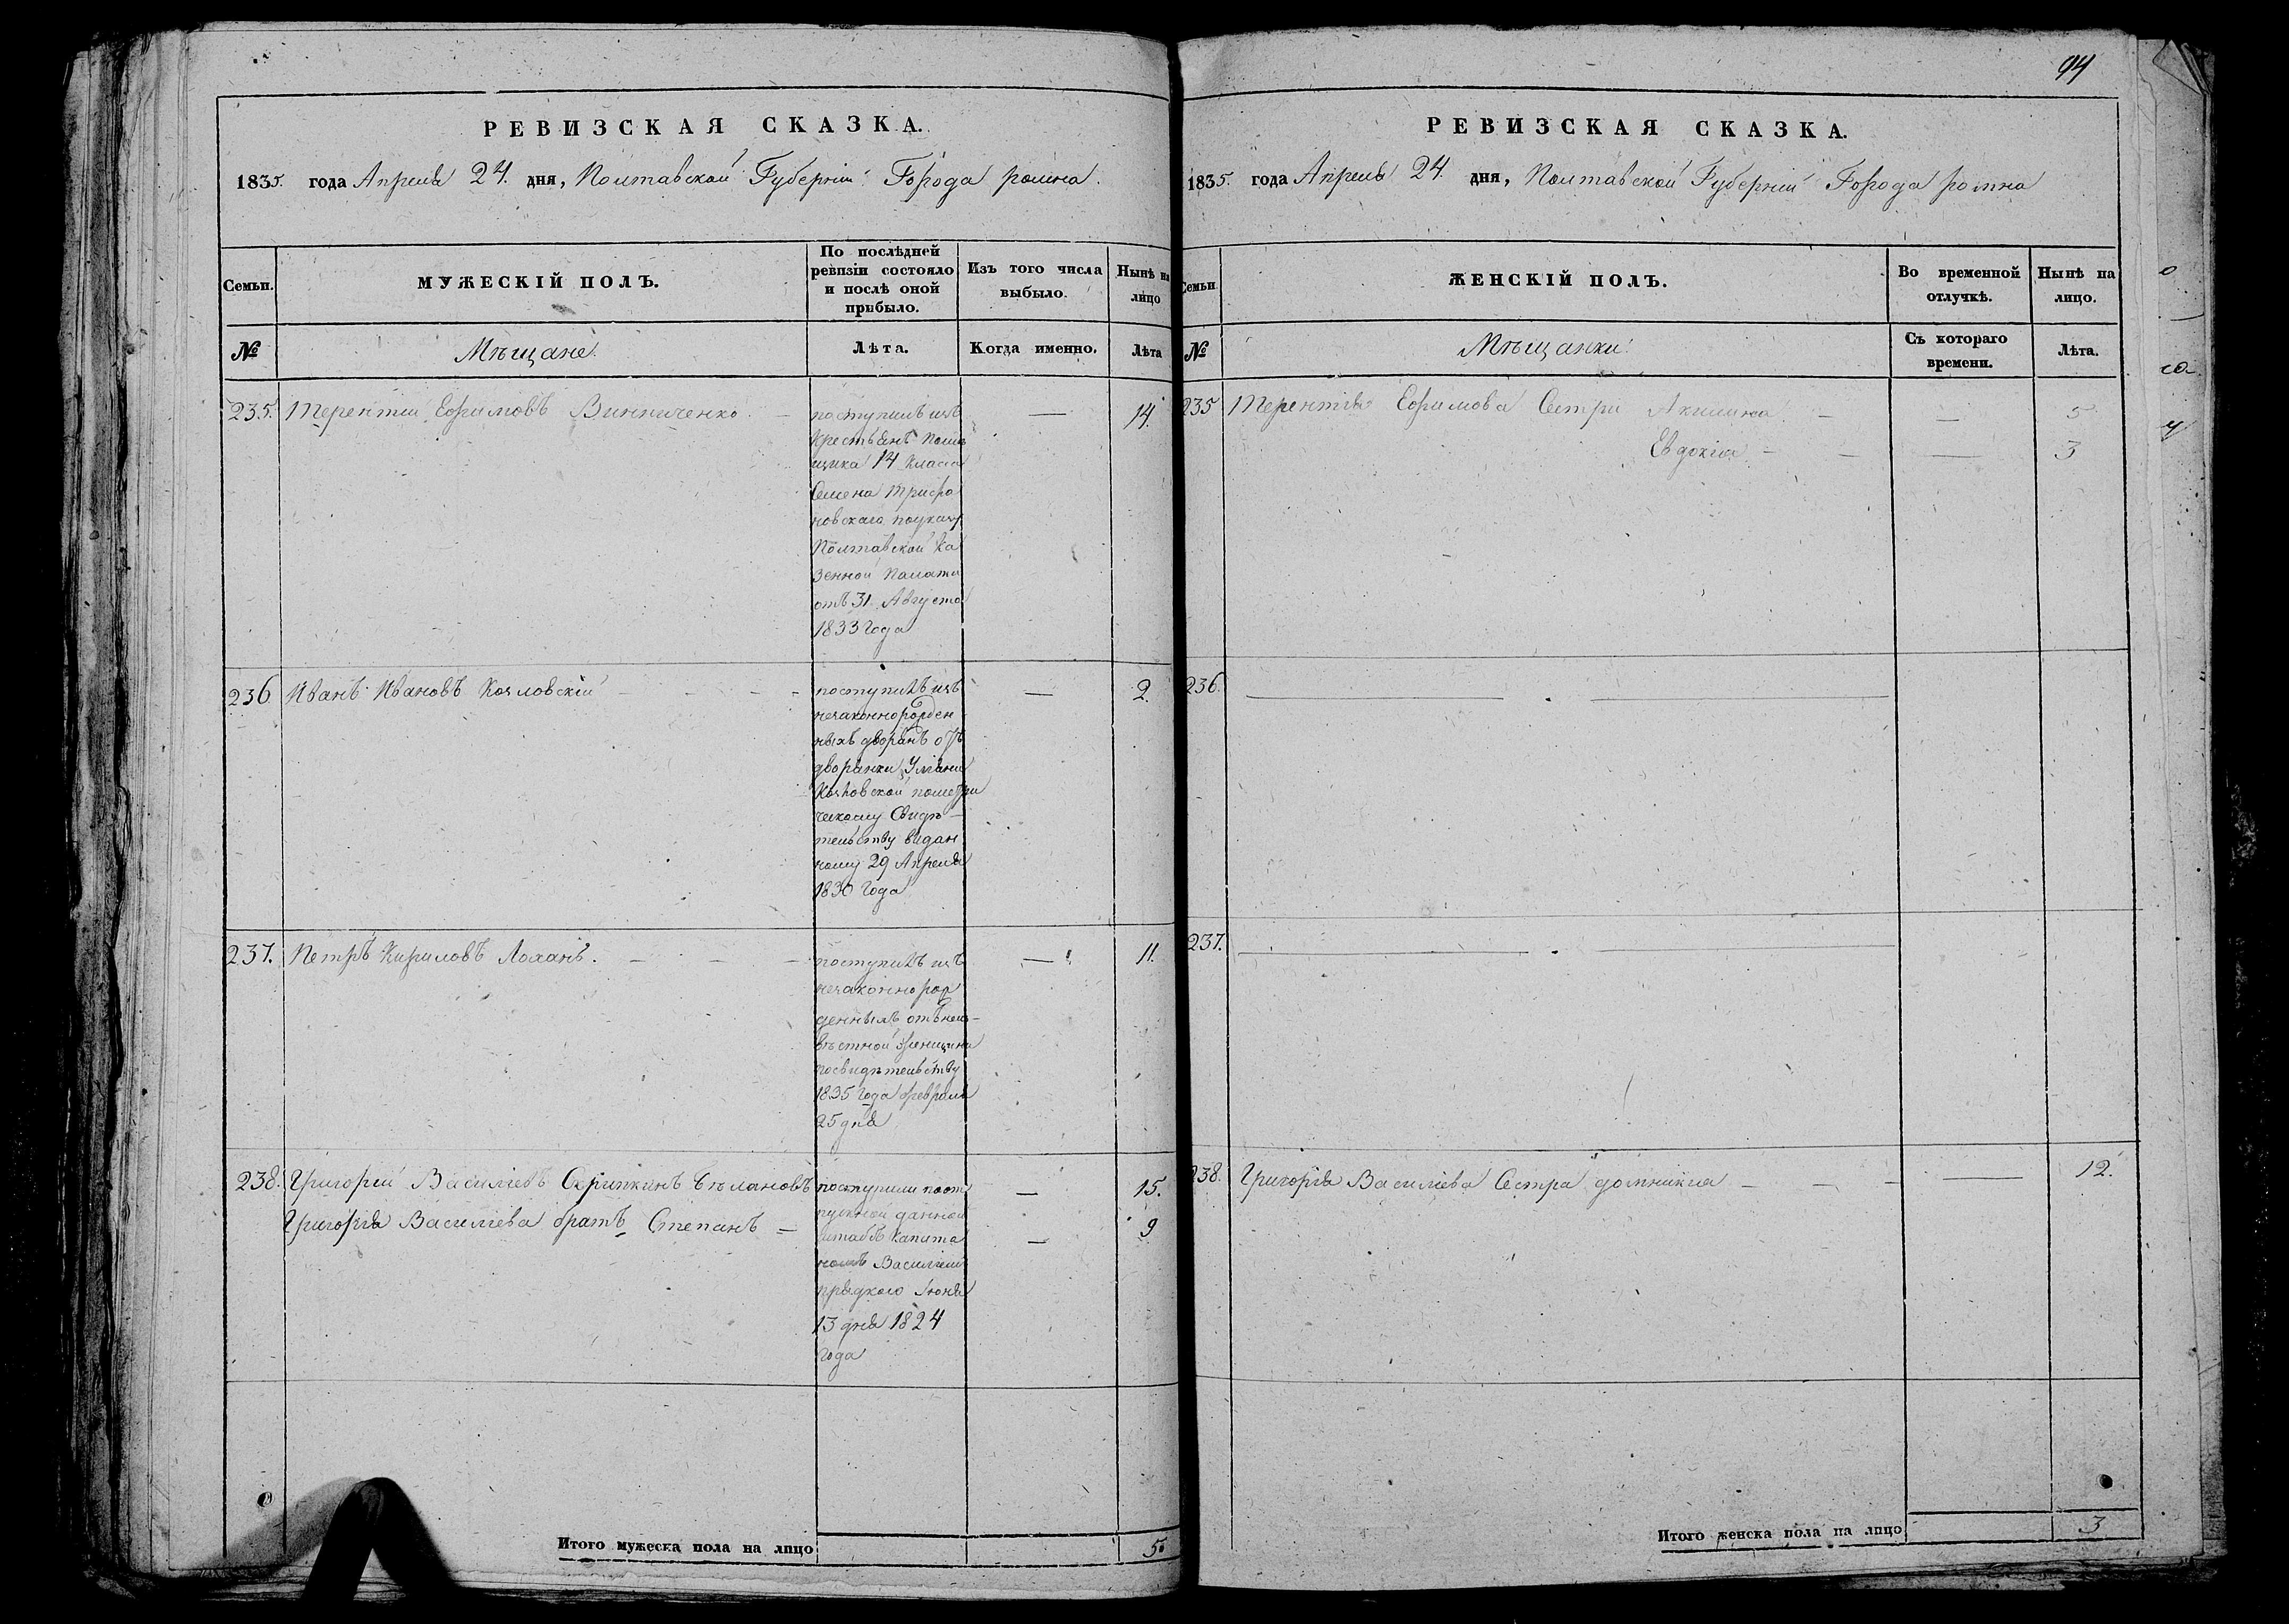 РЕВИЗСКАЯ СКАЗКА.
1835. года Апреля 24. дня, Полтавской Губернии Города ромна.
Семьи.
МУЖЕСКІЙ ПОЛЪ.
По послѣдней
ревизіи состояло
и послѣ оной
прибыло.
Изъ того числа
выбыло.
Нынѣ на
лицо
№
Мѣщане.
Лѣта.
Когда именно.
Лѣта
235. Терентий Ефимовъ Винниченко — 14.
поступилъ изъ
Крестьянъ поме
щика 14 класса
Семена Трифа
новскаго поуказу
Полтавской Ка
зенной Палаты
отъ 31 Августа
1833 года
236 Иванъ Ивановъ Козловскій — 2.
поступилъ изъ
незаконнорожден
ныхъ дворянъ отъ
дворянки
Козловской пометри
ческому Свидѣ—
тельству видан
ному 29 Апреля
1830 года
237. Петръ Кириловъ Лоханъ. — 11.
поступилъ изъ
незаконнорож
денныхъ отъ неиз—
вѣстной женщины
посвидѣтельству
1835 года февраля
25 дня
238. Григорий Василіевъ Скрипкинъ — 15.
Григорія Василіева братъ Степанъ — 9
поступили поот
пускной данной
штабсъ Капита
номъ Василіем
Іюня
13 дня 1824
года
Итого мужеска пола на лицо 5
94
РЕВИЗСКАЯ СКАЗКА.
1835. года Апреля 24. дня, Полтавской Губерніи Города ромна
Семьи
ЖЕНСКІЙ ПОЛЪ.
Во временной
отлучкѣ.
Нынѣ на
лицо.
№
Мѣщанки
Съ котораго
времени.
Лѣта.
235 Терентія Ефимова Сестри Акилина — 5
Евдокія — 3
236.
237.
238. Григорія Василіева Сестра домникія — 12.
Итого женска пола на лицо 3